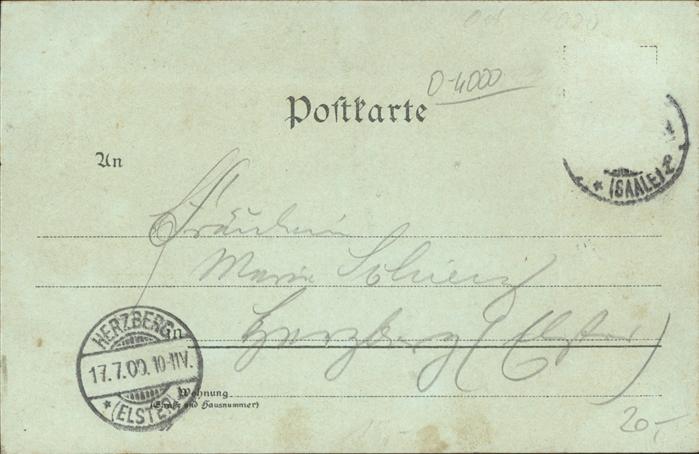 O-4000
Postkarte
* (SAALE) 2
An
Fräulein
Marie
in Herzberg (Elster)
HERZBERG
17.7.00.10-11V.
* (ELSTER)
Wohnung
(Straße und Hausnummer)
20,-